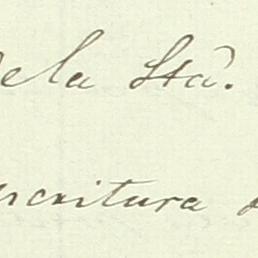 de la Sta.
escritura